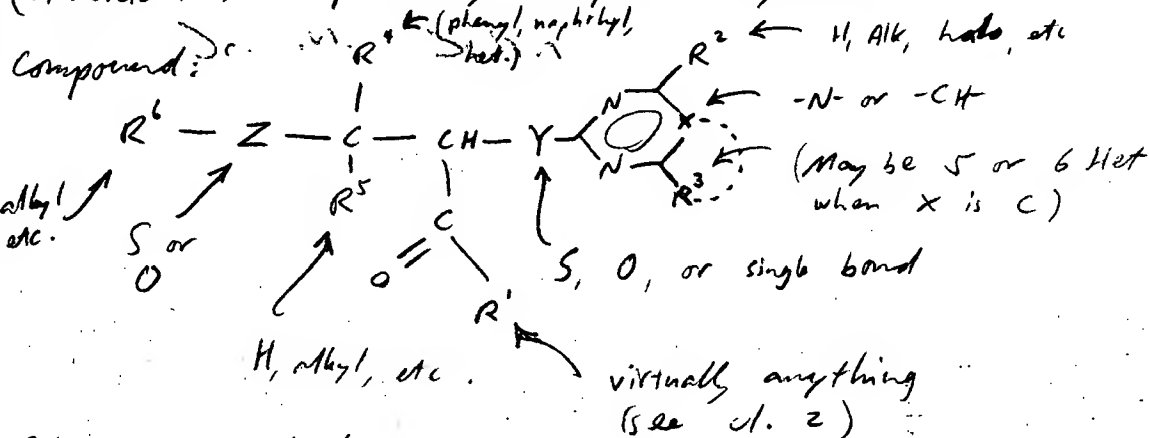 R⁴ ← (phenyl, naphthyl, het.)
Compound:
R² ← H, Alk, halo, etc
R⁶ — Z — C — CH — Y
N
N
X
← -N- or -CH-
R³
(May be 5 or 6 Het
when X is C)
alkyl
etc.
S or
O
R⁵
C
O
R¹
S, O, or single bond
H, alkyl, etc.
virtually anything
(see cl. 2)